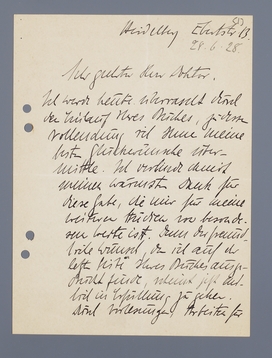 Heidelberg Ebertstr. 13
28-6-28.
Sehr geehrter Herr Doktor.
Ich werde heute überrascht durch
den Einlauf Ihres Buches, zu dessen
Vollendung ich Ihnen meine
besten Glückwünsche über-
mittle. Ich verbinde damit
meinen wärmsten Dank für
diese Gabe, die mir für meine
weiteren Studien von beson-
derem Werte ist. Denn der freund-
liche Wunsch, den ich auf der
letzten Seite Ihres Buches ausge-
drückt finde, scheint jetzt
in Erfüllung zu gehen.
Durch Vorlesungen, Arbeiten für